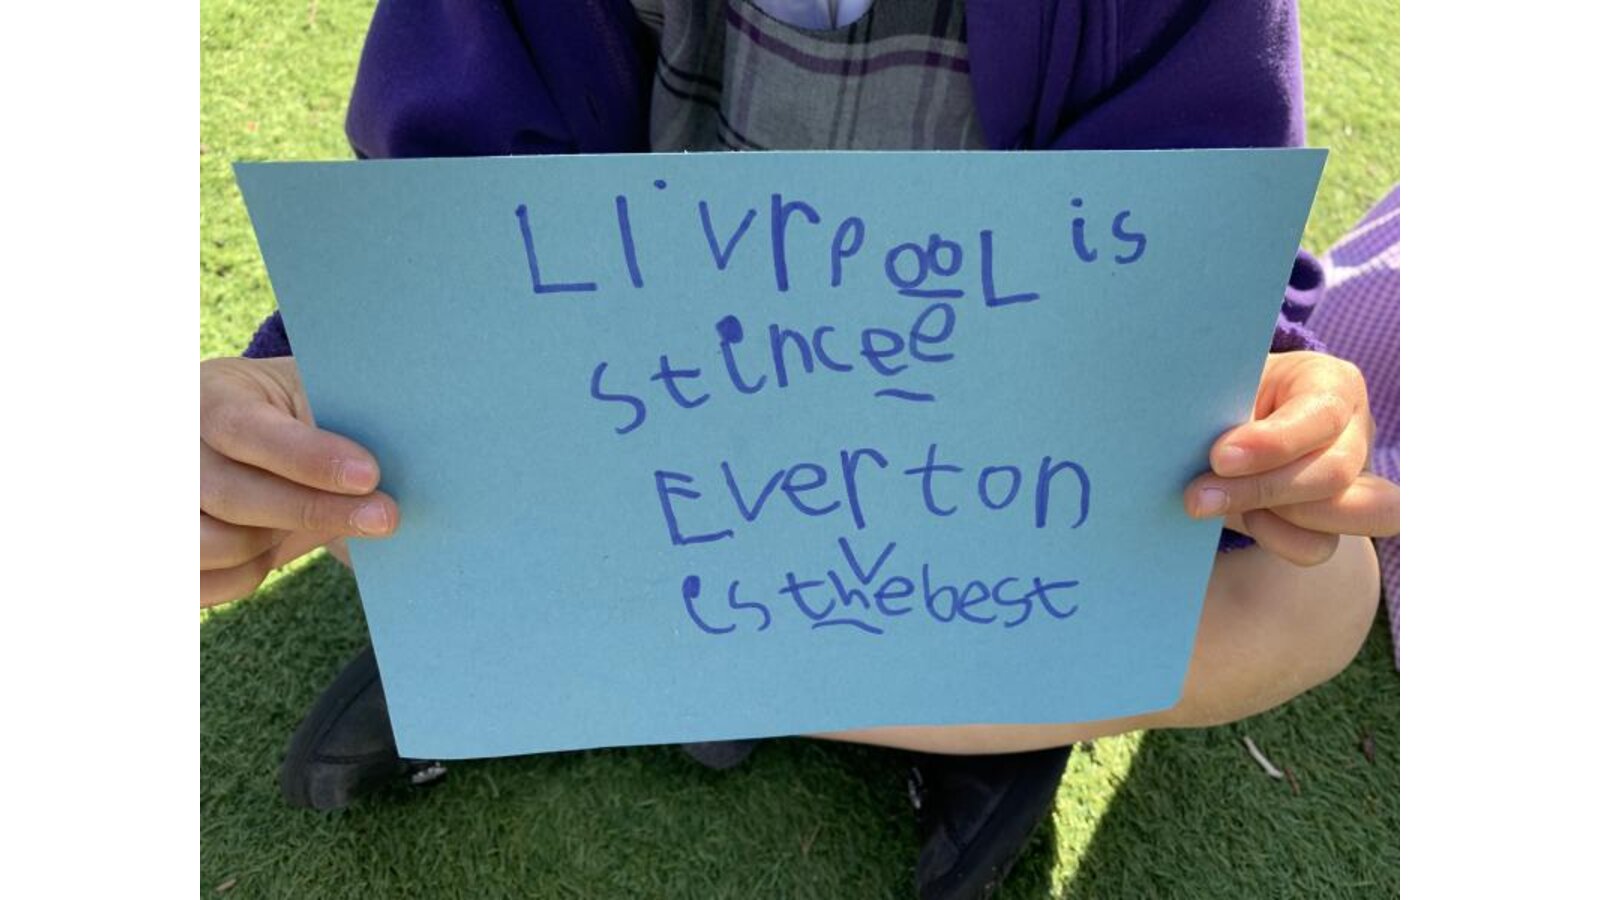 Livrpool is
stincee
Everton
is the best